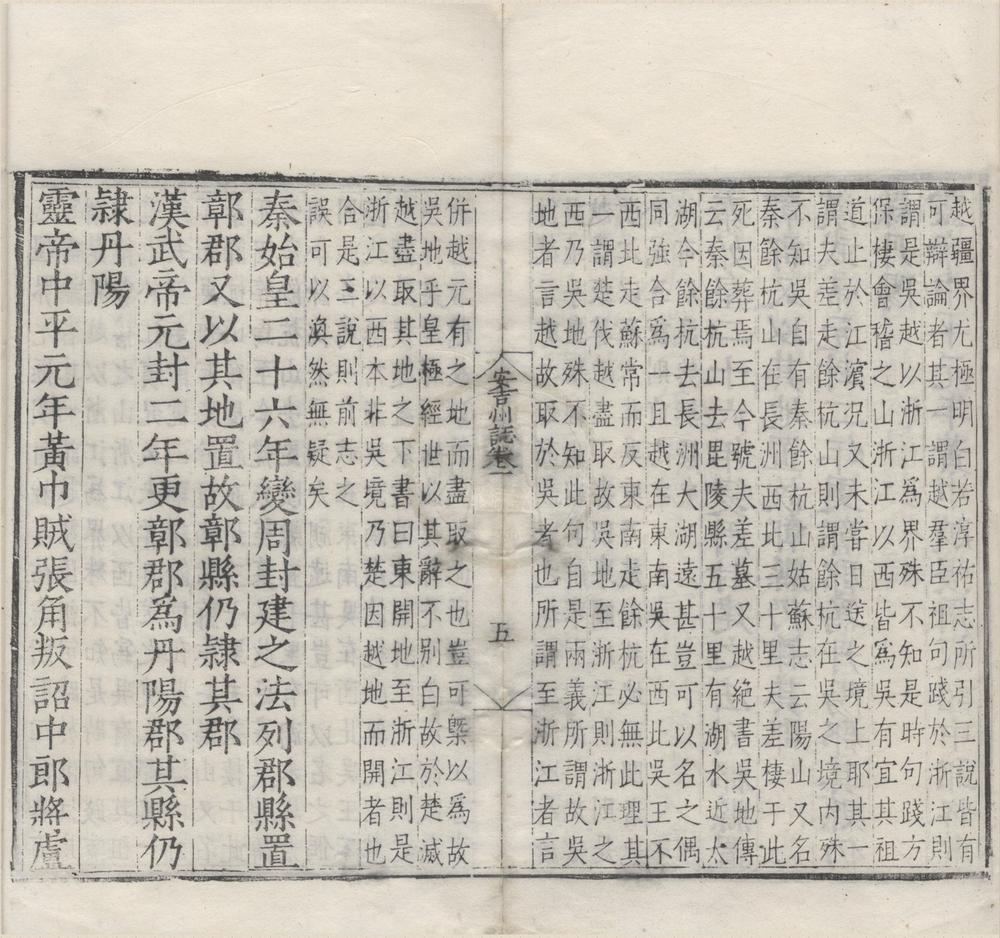 越疆界尤極明白若淳祐志所引三說皆有
可辯論者其一謂越羣臣祖句踐於浙江則
謂是吳越以浙江為界殊不知是時句踐方
保棲會稽之山浙江以西皆為吳有宜其祖
道止於江濵況又未嘗日送之境上耶其一
謂夫差走餘杭山則謂餘杭在吳之境內殊
不知吳自有秦餘杭山姑蘇志云陽山又名
秦餘杭山在長洲西北三十里夫差棲于此
死因葬焉至今號夫差墓又越絕書吳地傳
云秦餘杭山去毘陵縣五十里有湖水近太
湖今餘杭去長洲大湖遠甚豈可以名之偶
同強合為一且越在東南吳在西北吳王不
西北走蘇常而反東南走餘杭必無此理其
一謂楚伐越盡取故吳地至浙江則浙江之
西乃吳地殊不知此句自是兩義所謂故吳
地者言越故取於吳者也所謂至浙江者言
安吉州誌卷一
五
併越元有之地而盡取之也豈可槩以為故
吳地乎皇極經世以其辭不別白故於楚滅
越盡取其地之下書曰東開地至浙江則是
浙江以西本非吳境乃楚因越地而開者也
合是三說則前志之
誤可以渙然無疑矣
秦始皇二十六年變周封建之法列郡縣置
鄣郡又以其地置故鄣縣仍隸其郡
漢武帝元封二年更鄣郡為丹陽郡其縣仍
隸丹陽
靈帝中平元年黃巾賊張角叛詔中郎將盧